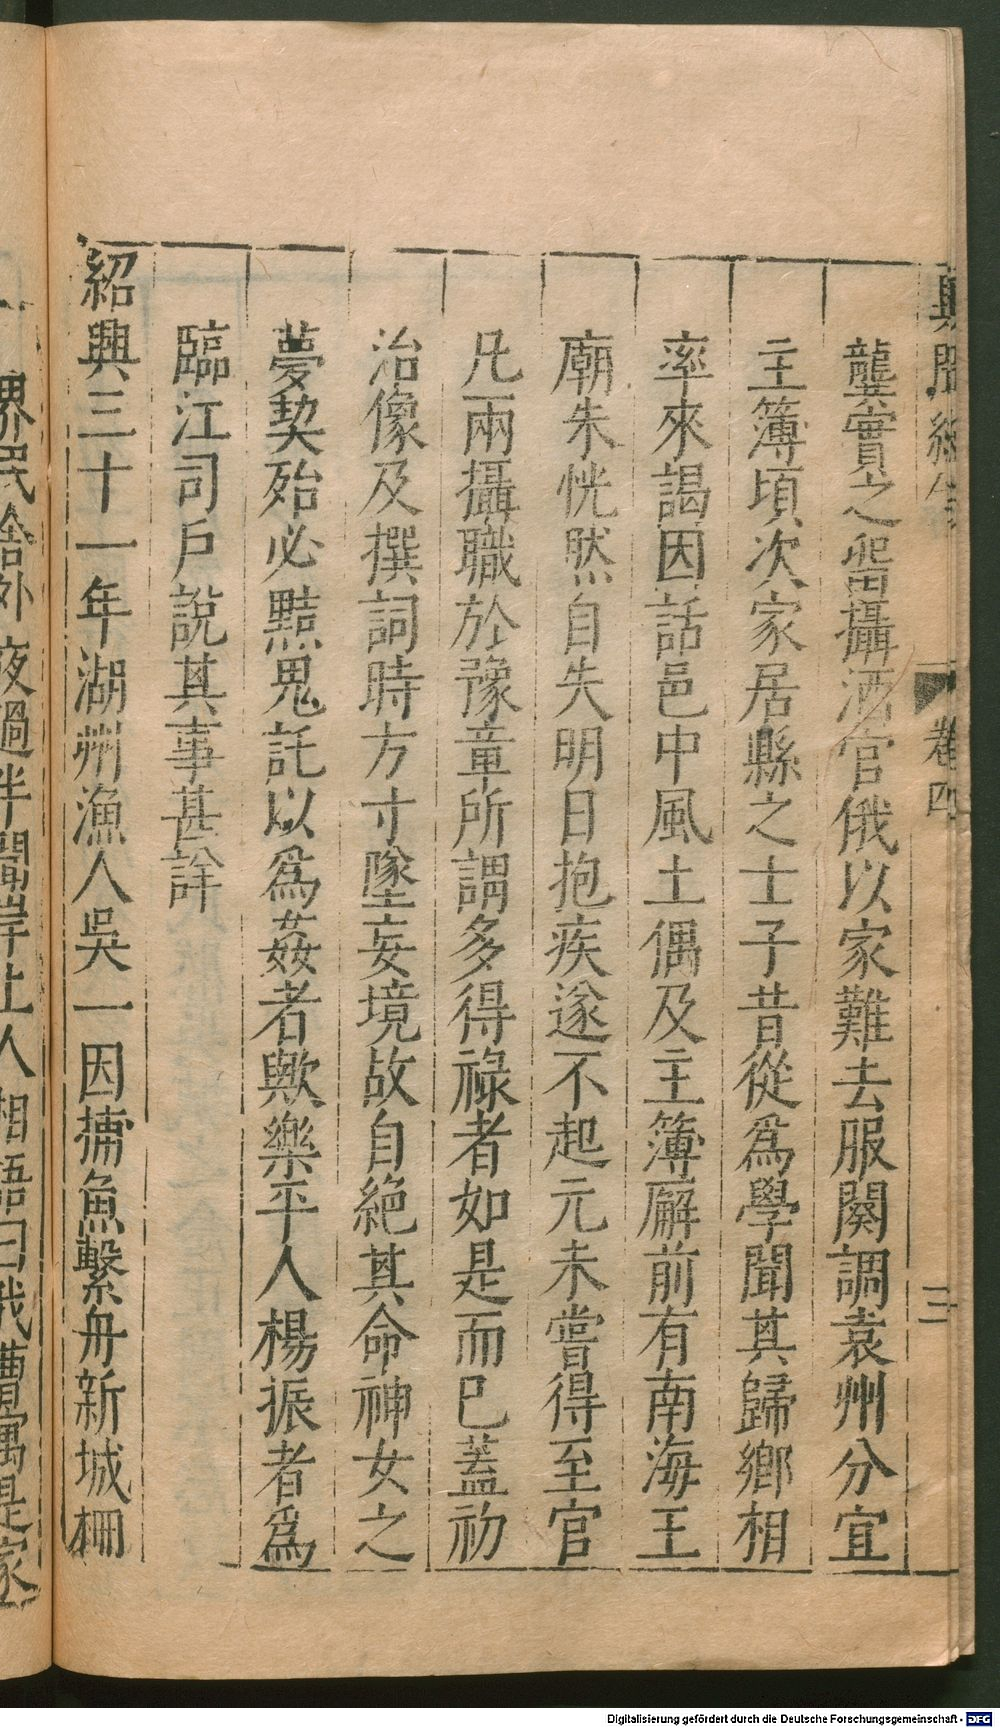 卷四
三
龔實之留攝酒官俄以家難去服闋調袁州分宜
主簿頃次家居縣之士子昔從爲學聞其歸鄉相
率來謁因話邑中風土偶及主簿廨前有南海王
廟朱恍然自失明日抱疾遂不起元未嘗得至官
凡兩攝職於豫章所謂多得祿者如是而已蓋初
治像及撰詞時方寸墜妄境故自絕其命神女之
夢契殆必黠鬼託以爲姦者歟樂平人楊振者爲
臨江司戶說其事甚詳
紹興三十一年湖州漁人吳一因捕魚繫舟新城柵
界民舍外夜過半聞岸上人相語曰我曹寓是家
Digitalisierung gefördert durch die Deutsche Forschungsgemeinschaft - DFG